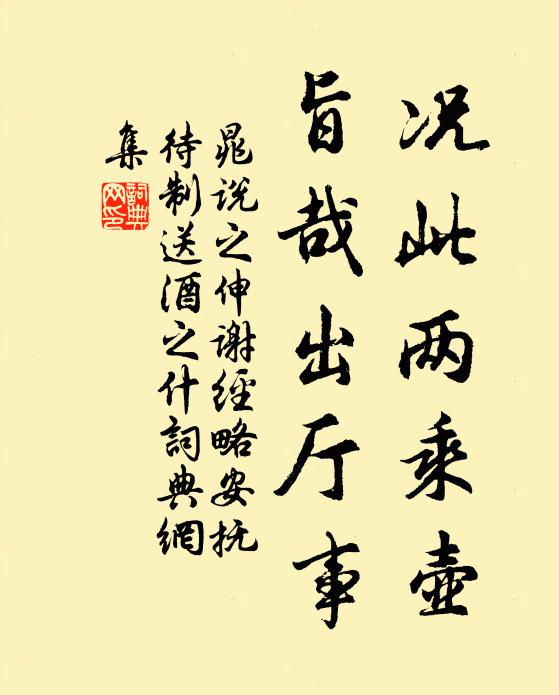 况此两乘壶
旨哉出厅事
晁说之伸谢经略安抚
待制送酒之什詞典網
集
詞典
网印